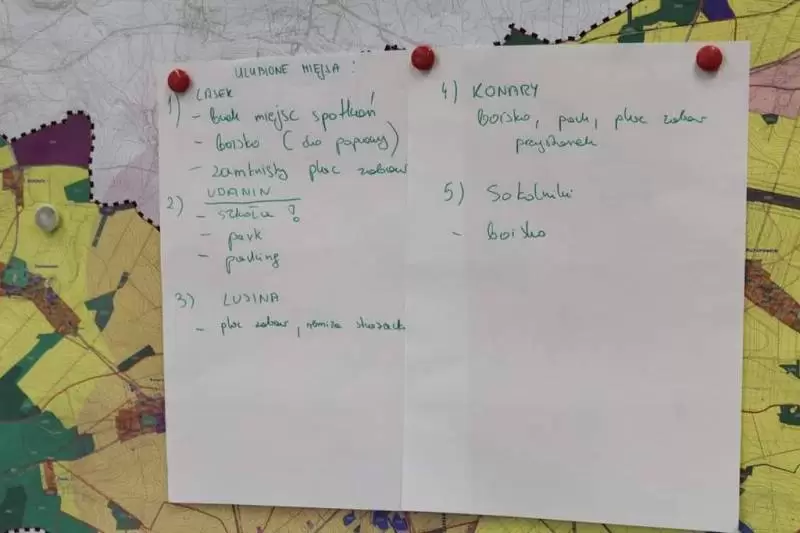 ULUBIONE MIEJSA :
1) LASEK
- brak miejsc spotkań
- boisko (do poprawy)
- zamknięty plac zabaw
2) UDANIN
- szkoła !
- park
- parking
3) LUSINA
- plac zabaw, remiza strażack
4) KONARY
boisko, park, plac zabaw
przystanek
5) Sokolniki
- boisko